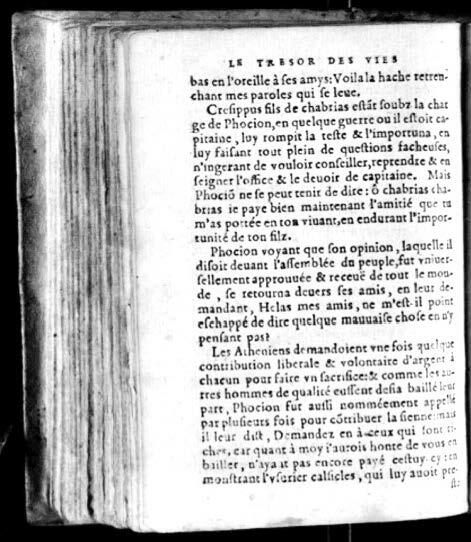 LE TRESOR DES VIES
bas en l'oreille à ses amys: Voila la hache retren-
chant mes paroles qui se leue.
Cresippus fils de chabrias estãt soubz la char
ge de Phocion, en quelque guerre ou il estoit ca-
pitaine, luy rompit la teste & l'importuna, en
luy faisant tout plein de questions facheuses,
n'ingerant de vouloir conseiller, reprendre & en
seigner l'office & le deuoir de capitaine. Mais
Phociõ ne se peut tenir de dire: ô chabrias cha-
brias ie paye bien maintenant l'amitié que tu
m'as portée en ton viuant, en endurant l'impor-
tunité de ton filz.
Phocion voyant que son opinion, laquelle il
disoit deuant l'assemblée du peuple, fut vniuer-
sellement approuuée & receuë de tout le mon-
de, se retourna deuers ses amis, en leur de-
mandant, Helas mes amis, ne m'est-il point
eschappé de dire quelque mauuaise chose en n'y
pensant pas?
Les Atheniens demandoient vne fois quelque
contribution liberale & volontaire d'argent à
chacun pour faire vn sacrifice: & comme les au-
tres hommes de qualité eussent desia baillé leur
part, Phocion fut aussi nommeément appellé
par plusieurs fois pour cõtribuer la sienne: mais
il leur dist, Demandez en à ceux qui sont ri-
ches, car quant à moy i'aurois honte de vous en
bailler, n'ayant pas encore payé cestuy-cy: en
monstrant l'vsurier calsicles, qui luy auoit pre-
st: